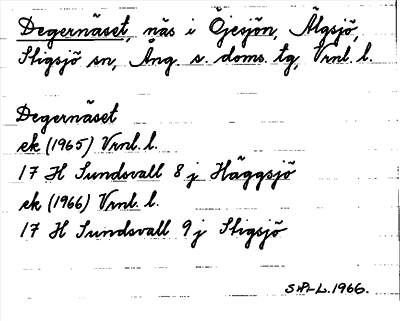 Degernäset, näs i Öjesjön, Älgsjö,
Stigsjö sn, Äng. s. doms. tg, Vrnl. l.
Degernäset
ek (1965) Vrnl. l.
17 H Sundsvall 8 j Häggsjö
ek (1966) Vrnl. l.
17 H Sundsvall 9 j Stigsjö
1966.